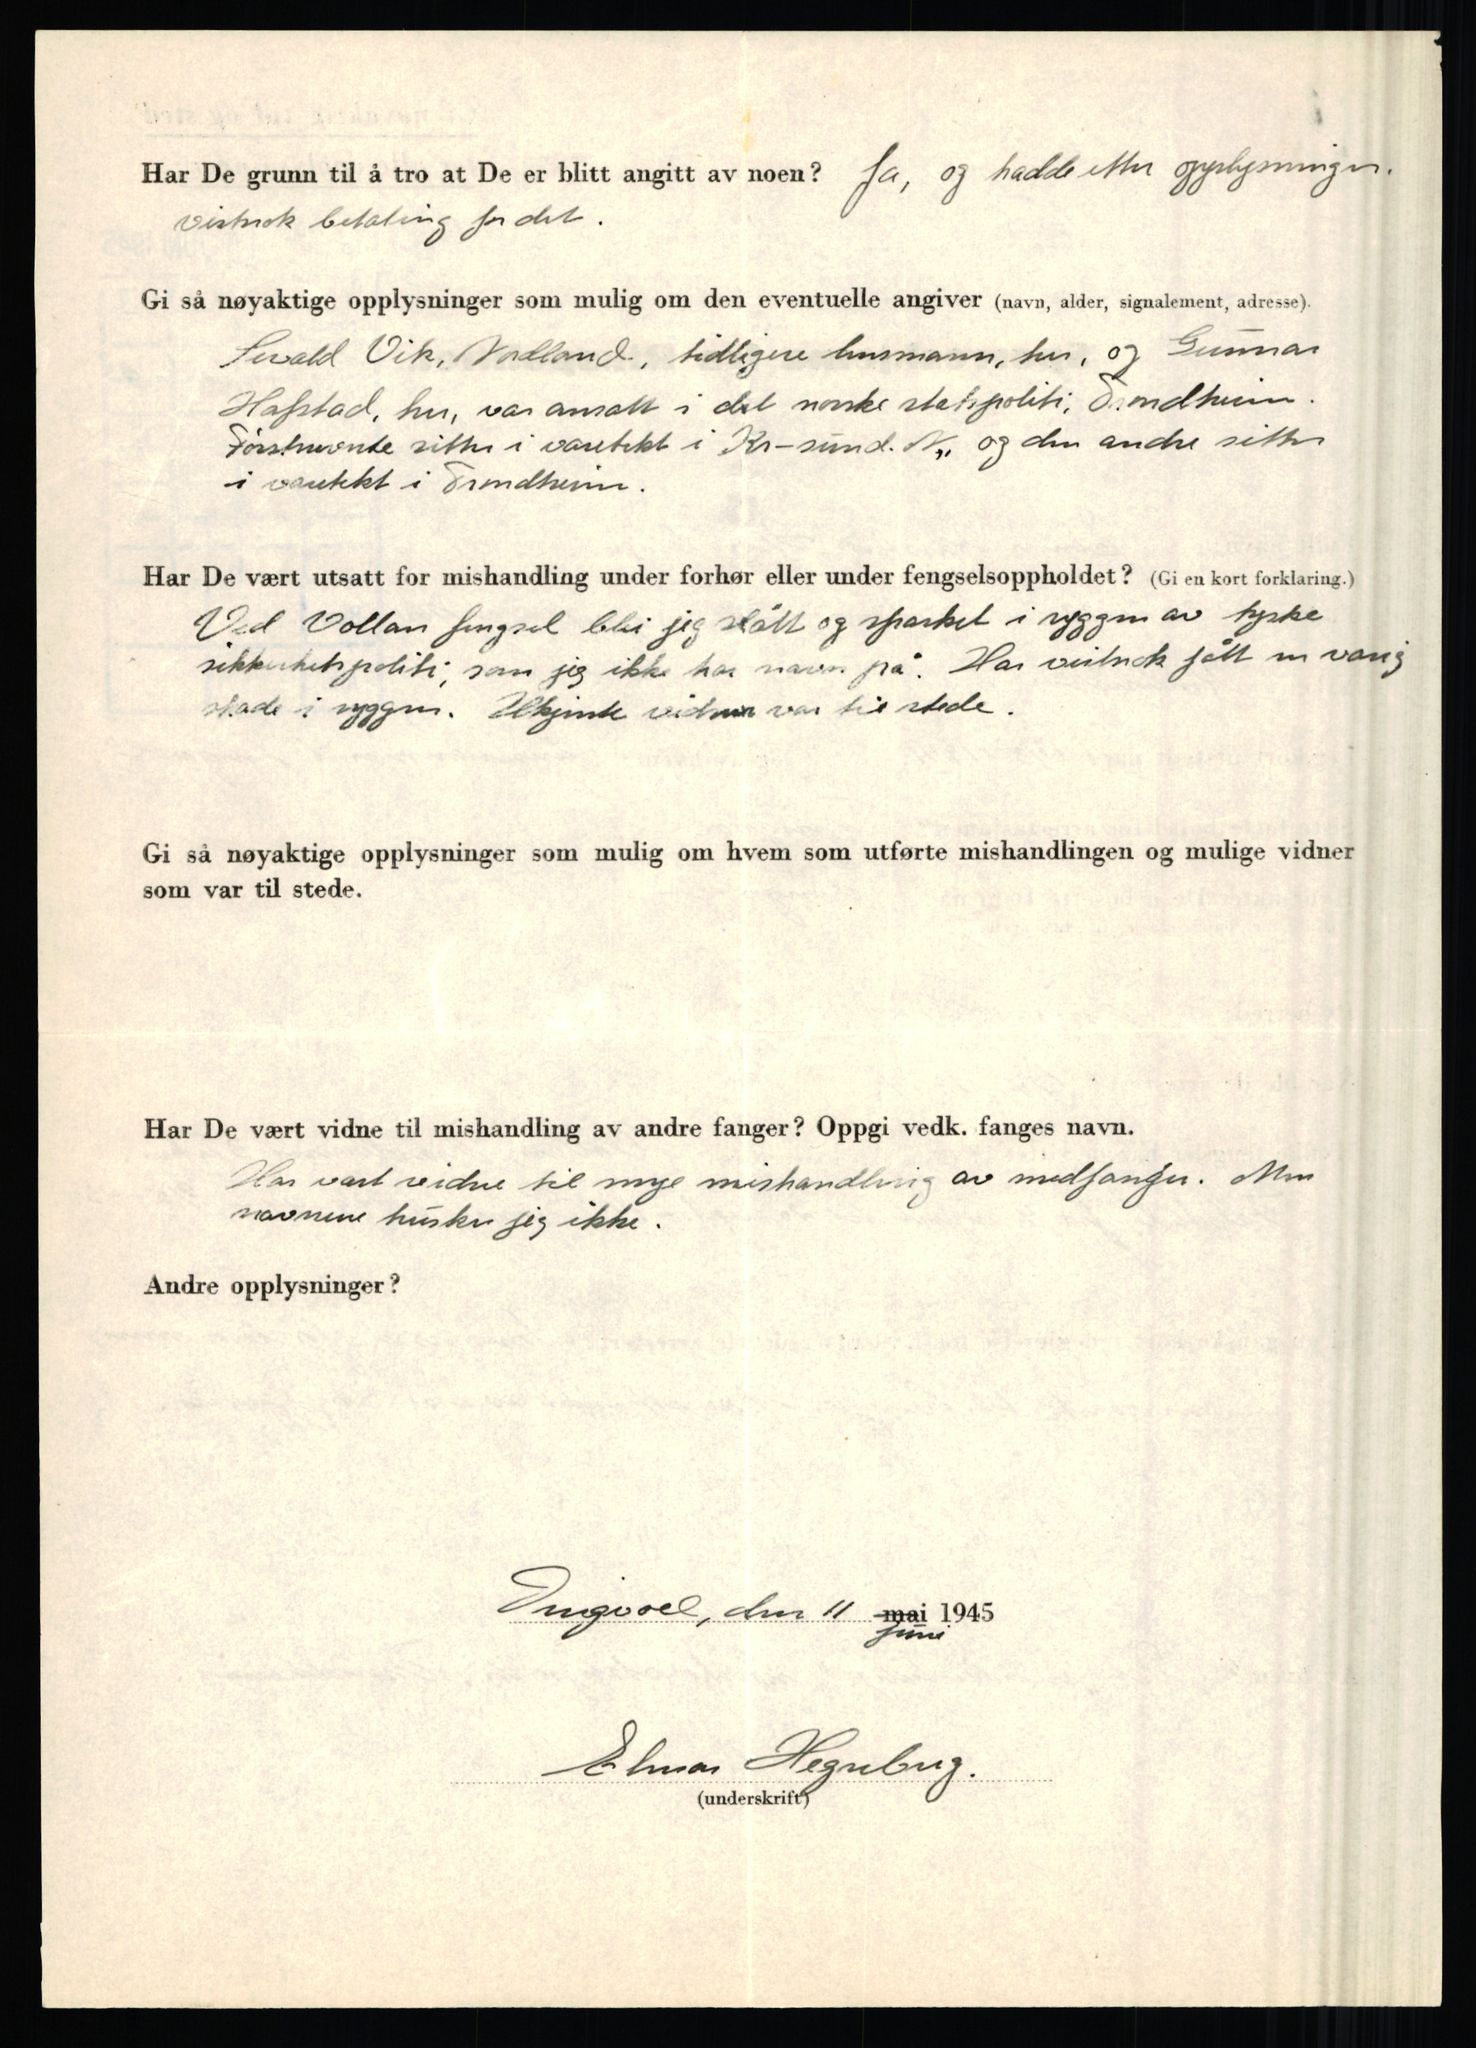 Har De grunn til å tro at De er blitt angitt av noen? Ja, og hadde etter opplysninger.
vistnok betaling for det.
Gi så nøyaktige opplysninger som mulig om den eventuelle angiver (navn, alder, signalement, adresse).
Sevald Vik, Nordland, tidligere husmann, her, og Gunnar
Hafstad, her, var ansatt i det norske statspoliti, Trondheim.
Førstnevnte sitter i varetekt i Kr-sund. N., og den andre sitter
i varetekt i Trondheim.
Har De vært utsatt for mishandling under forhør eller under fengselsoppholdet? (Gi en kort forklaring.)
Ved Vollan fengsel blei jeg slått og sparket i ryggen av tyske
sikkerhetspoliti, som jeg ikke har navn på. Har vistnok fått en varig
skade i ryggen. Ukjente vidner var til stede.
Gi så nøyaktige opplysninger som mulig om hvem som utførte mishandlingen og mulige vidner
som var til stede.
Har De vært vidne til mishandling av andre fanger? Oppgi vedk. fanges navn.
Har vært vidne til mye mishandling av medfanger. Men
navnene husker jeg ikke.
Andre opplysninger?
Tingvoll, den 11 mai 1945
juni
Elmar Hegreberg.
(underskrift)